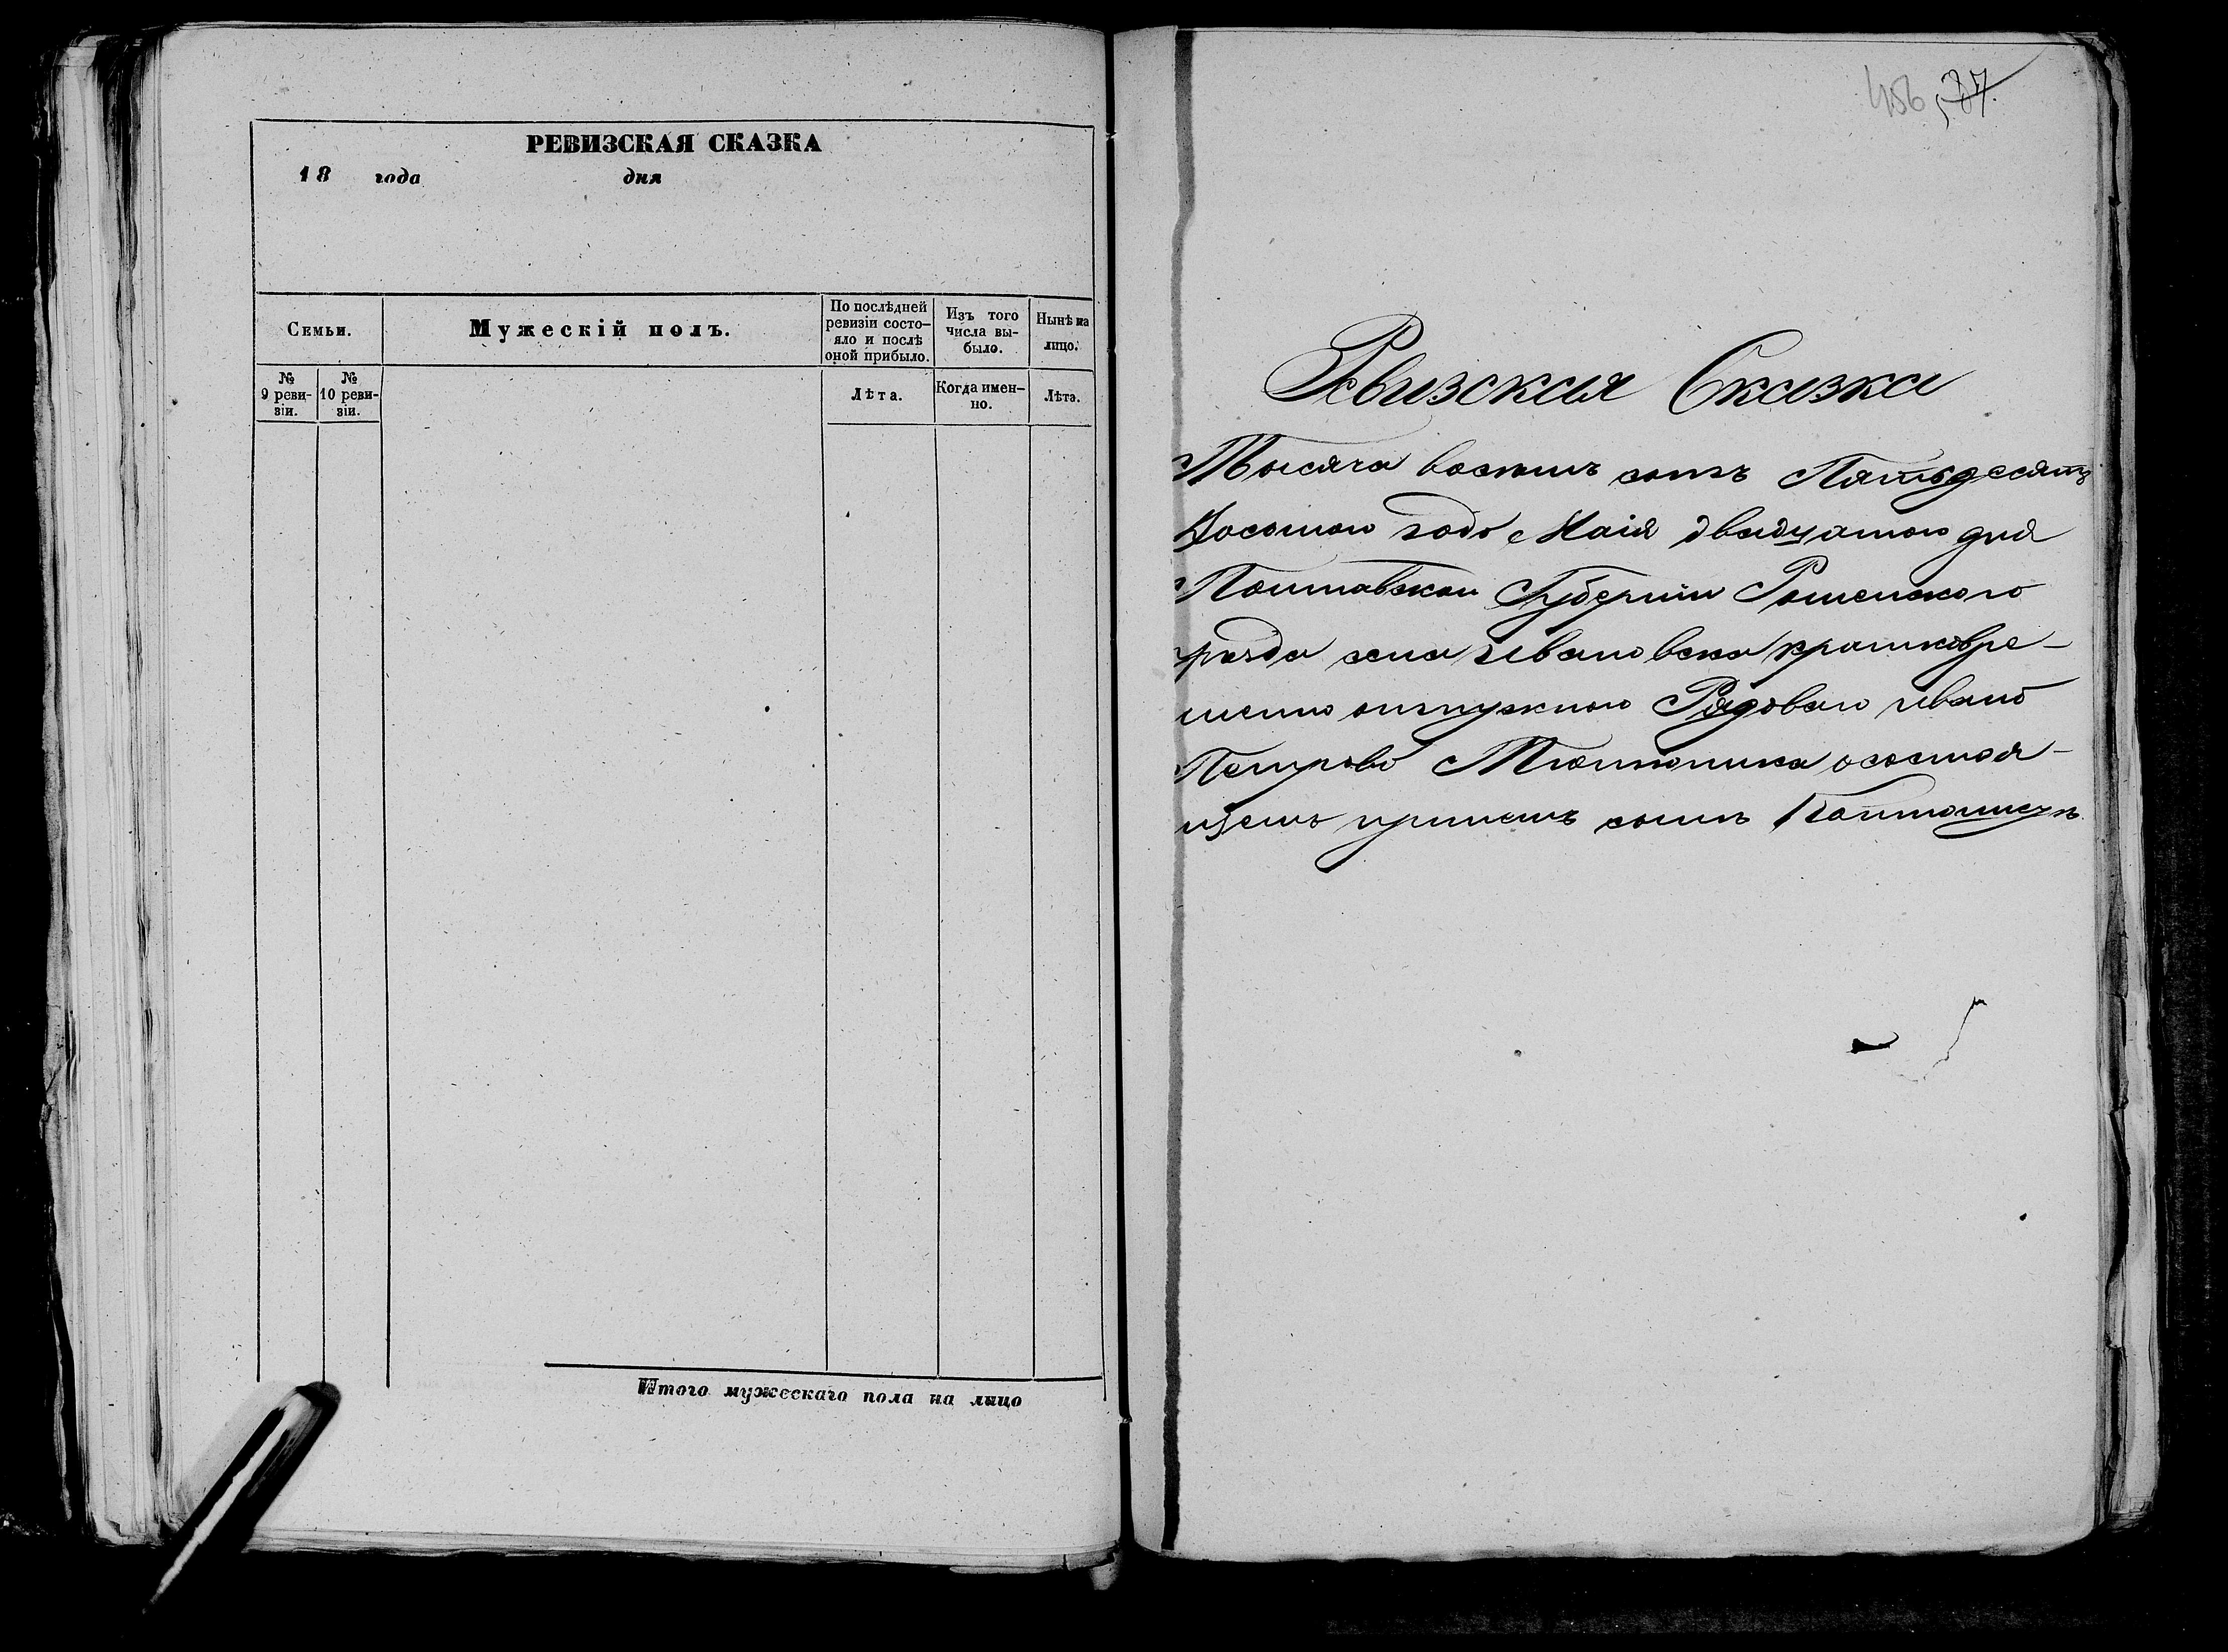 РЕВИЗСКАЯ СКАЗКА
18 года дня
Семьи.
Мужескій полъ.
По послѣдней ревизіи состо-
яло и послѣ
оной прибыло.
Изъ того
числа вы-
было.
Нынѣ на
лицо.
№
9 реви-
зіи.
№
10 реви-
зіи.
Лѣта.
Когда имен-
но.
Лѣта.
Итого мужескаго пола на лицо
456 37.
Ревизская Сказка
Тысяча восемь сотъ Пятьдесятъ
Восьмого года Маія двадцатого дня
Полтавской Губерніи Роменского
уезда села Ивановска кратковре-
менно отпускного Рядового Ивана
Петрова Тютюника о состоя-
щемъ при немъ сыне